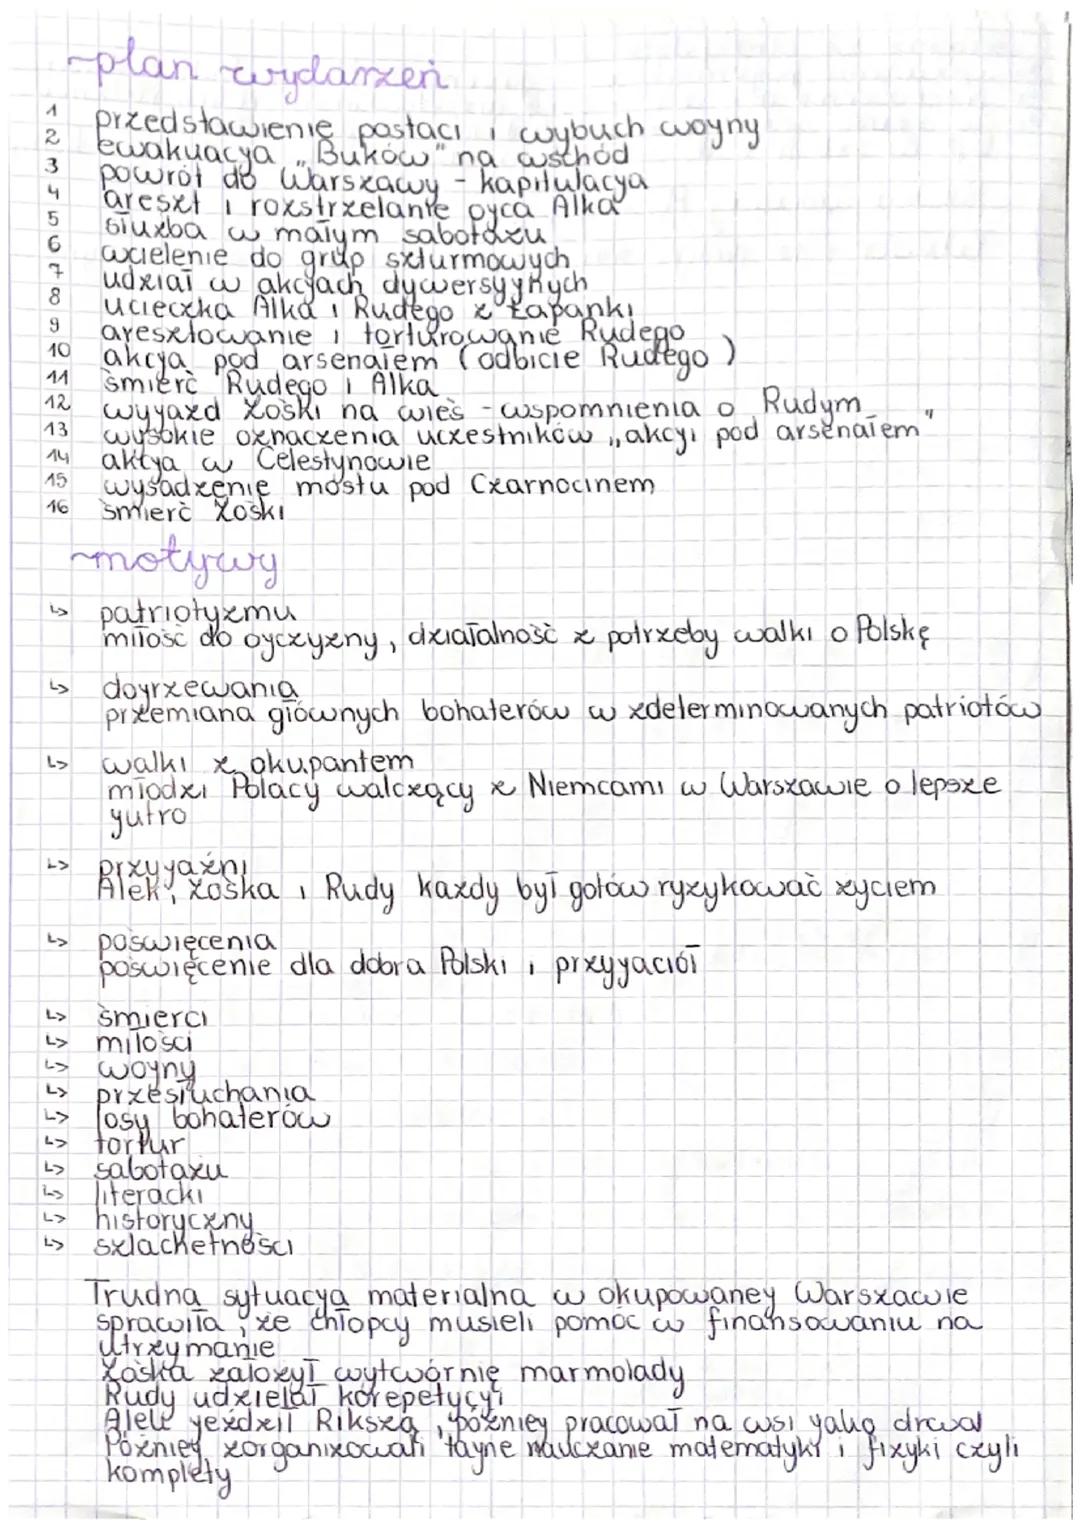 ~plan wydarzeń
1 przedstawienie postaci i wybuch wojny
2 ewakuacja „Buków" na wschód
3 powrót do Warszawy - kapitulacja
4 areszt i rozstrzelanie ojca Alka
5 służba w małym sabotażu
6 wcielenie do grup szturmowych
7 udział w akcjach dywersyjnych
8 ucieczka Alka i Rudego z łapanki
9 aresztowanie i torturowanie Rudego
10 akcja pod arsenałem (odbicie Rudego)
11 śmierć Rudego i Alka
12 wyjazd Zośki na wieś - wspomnienia o Rudym
13 wysokie oznaczenia uczestników „akcji pod arsenałem"
14 akcja w Celestynowie
15 wysadzenie mostu pod Czarnocinem
16 śmierć Zośki
~motywy
↳ patriotyzmu
miłość do ojczyzny, działalność z potrzeby walki o Polskę
↳ dojrzewania
przemiana głównych bohaterów w zdeterminowanych patriotów
↳ walki z okupantem
młodzi Polacy walczący z Niemcami w Warszawie o lepsze
jutro
↳ przyjaźni
Alek, Zośka i Rudy każdy był gotów ryzykować życiem
↳ poświęcenia
poświęcenie dla dobra Polski i przyjaciół
↳ śmierci
↳ miłości
↳ wojny
↳ przesłuchania
↳ losy bohaterów
↳ tortur
↳ sabotażu
↳ literacki
↳ historyczny
↳ szlachetności
Trudna sytuacja materialna w okupowanej Warszawie
sprawiła, że chłopcy musieli pomóc w finansowaniu na
utrzymanie
Zośka założył wytwórnię marmolady
Rudy udzielał korepetycji
Alek jeździł Rikszą, później pracował na wsi jako drwal
Później zorganizowali tajne nauczanie matematyki i fizyki czyli
komplety